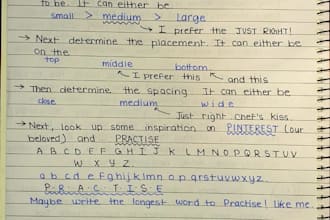 to be. It can either be
small > medium > Large
I prefer the JUST RIGHT!
→ Next determine the placement. It can either be
on the
top
middle
bottom
I prefer this and this
→ Then determine the spacing. It can either be
close medium wide
Just right chef's kiss.
→ Next, look up some inspiration on PINTEREST (our
beloved) and PRACTISE
A B C D E F G H I J K L M N O P Q R S T U V
W X Y Z
a b c d e f g h i j k l m n o p q r s t u v w x y z
P R A C T I S E
Maybe write the longest word to Practise! like me.